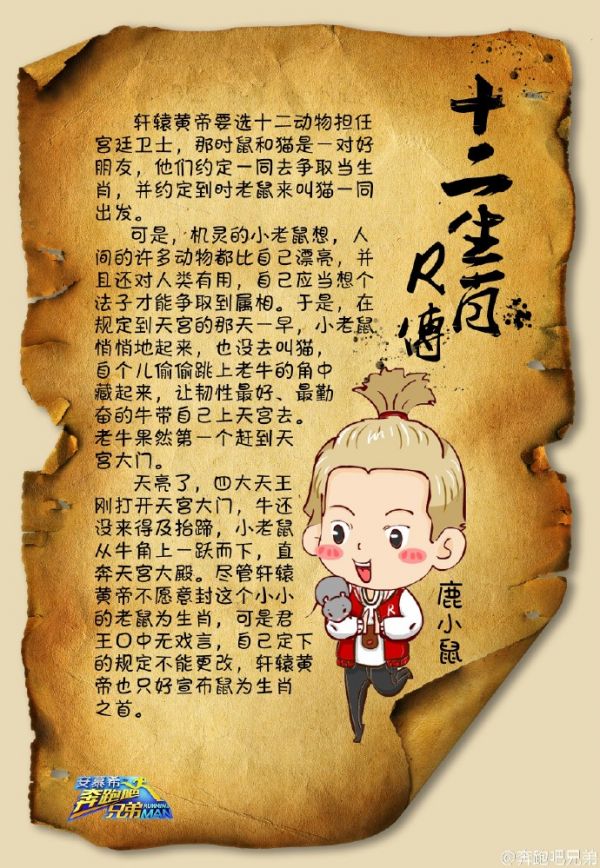 十二生肖
R傳
轩辕黄帝要选十二动物担任
宫廷卫士，那时鼠和猫是一对好
朋友，他们约定一同去争取当生
肖，并约定到时老鼠来叫猫一同
出发。
可是，机灵的小老鼠想，人
间的许多动物都比自己漂亮，并
且还对人类有用，自己应当想个
法子才能争取到属相。于是，在
规定到天宫的那天一早，小老鼠
悄悄地起来，也没去叫猫，
自个儿偷偷跳上老牛的角中
藏起来，让韧性最好、最勤
奋的牛带自己上天宫去。
老牛果然第一个赶到天
宫大门。
天亮了，四大天王
刚打开天宫大门，牛还
没来得及抬蹄，小老鼠
从牛角上一跃而下，直
奔天宫大殿。尽管轩辕
黄帝不愿意封这个小小
的老鼠为生肖，可是君
王口中无戏言，自己定下
的规定不能更改，轩辕黄
帝也只好宣布鼠为生肖
之首。
R
鹿小鼠
安慕希
奔跑吧
兄弟
RUNNING
MAN
@奔跑吧兄弟